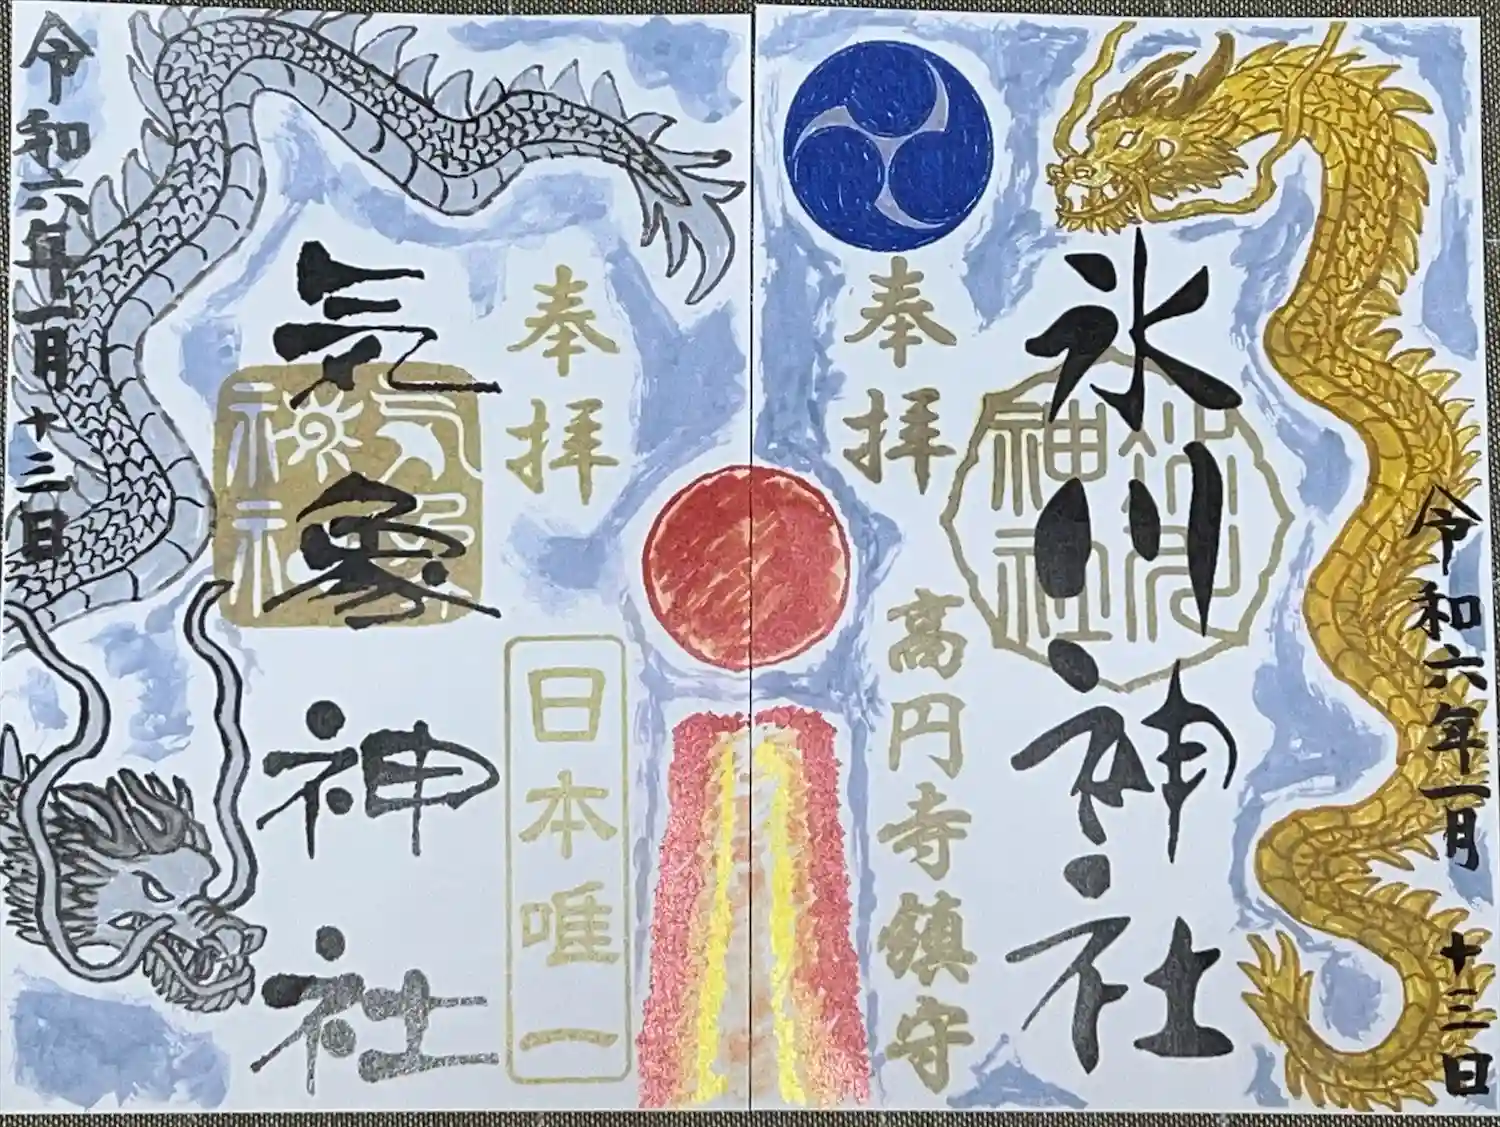 令和六年一月十三日
氷川神社
氷川
神社
奉拝
高円寺鎮守
奉拝
日本唯一
気象神社
気象
神社
令和六年一月十三日